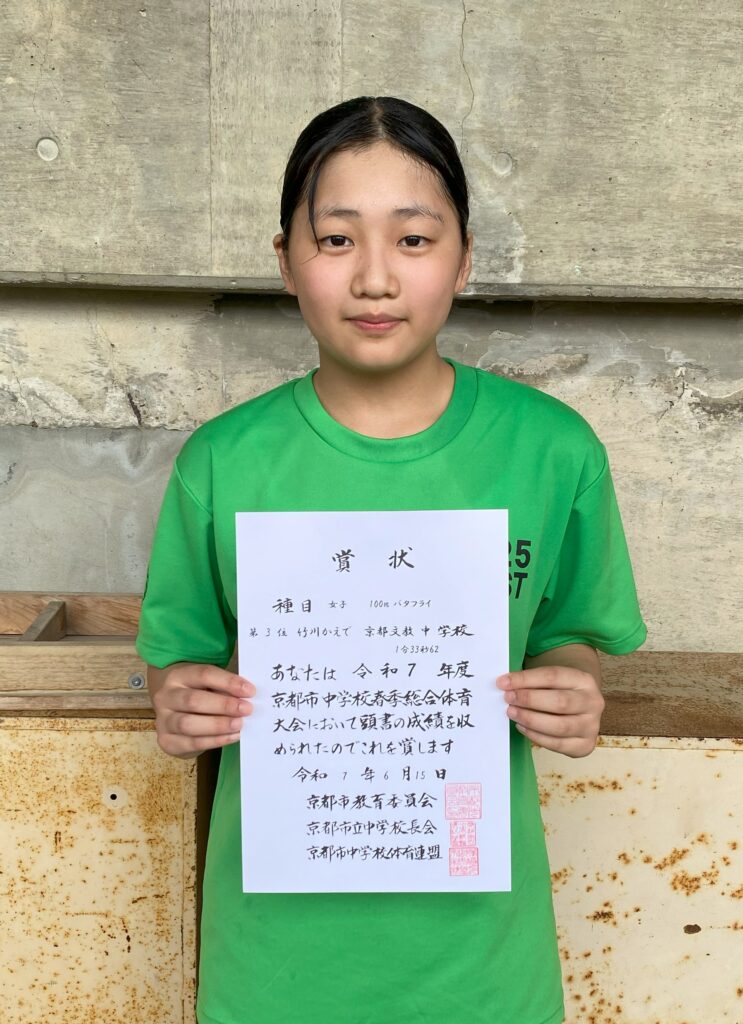 賞 状
種目 女子 100m バタフライ
第 3 位 竹川かえで 京都文教 中 学校
1分33秒62
あなたは 令和 7 年度
京都市中学校春季総合体育
大会において頭書の成績を収
められたのでこれを賞します
令和 7 年 6 月 15 日
京都市教育委員会
京都市立中学校長会
京都市中学校体育連盟
25
ST